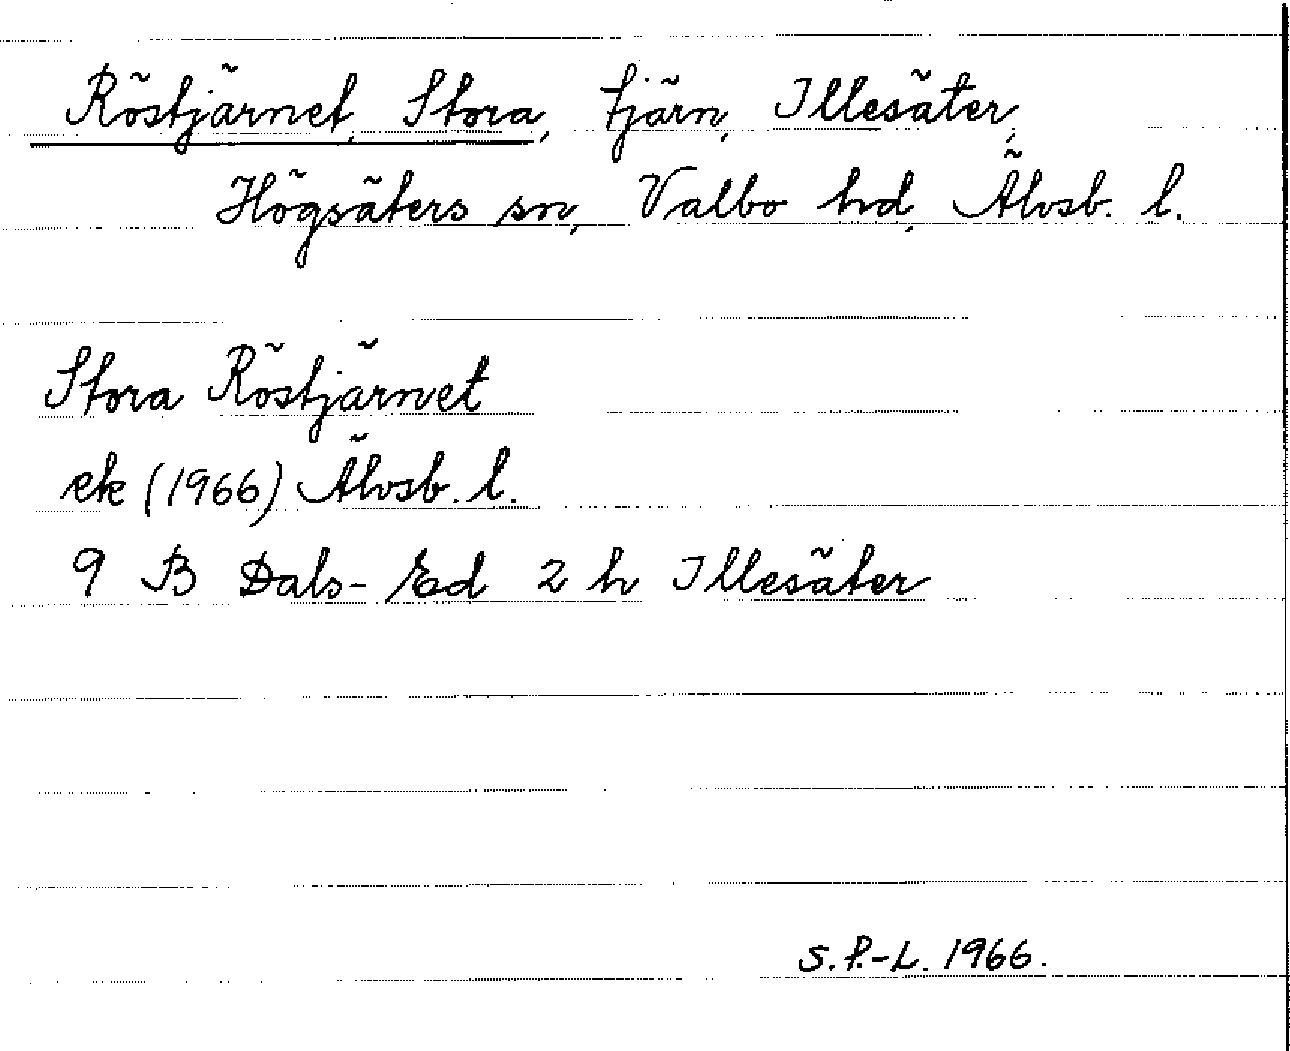 Röstjärnet, Stora, tjärn, Illesäter,
Högsäters sn, Valbo hd, Älvsb. l.
Stora Röstjärnet
ek (1966) Älvsb. l.
9 B Dals-Ed 2 h Illesäter
S.P.-L. 1966.